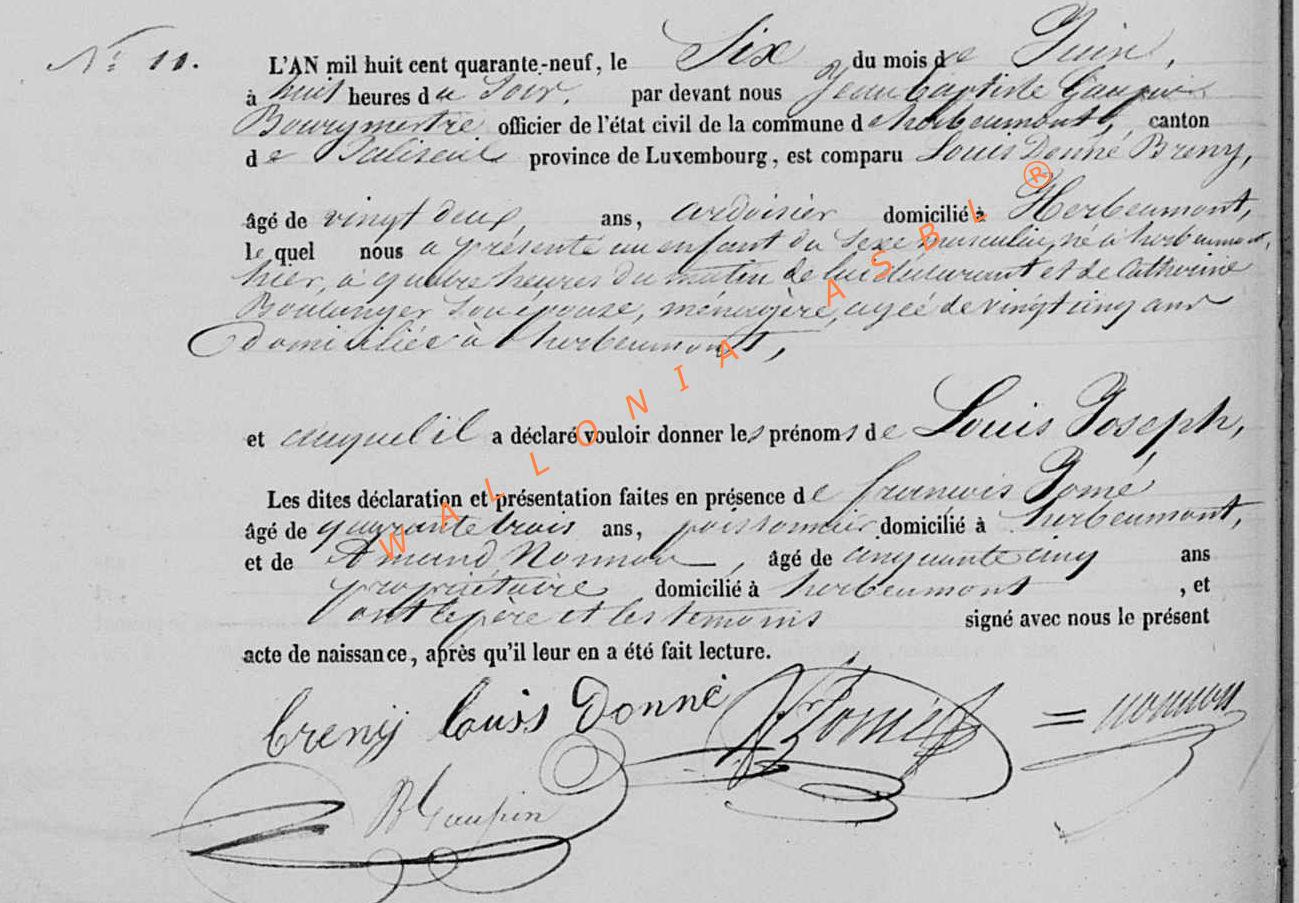 N° 11.
L'AN mil huit cent quarante-neuf, le Six du mois de Juin,
à huit heures du Soir, par devant nous Jean Baptiste Gaupin
Bourgmestre officier de l'état civil de la commune de herbeumont, canton
de Paliseul province de Luxembourg, est comparu Louis Donné Breny,
âgé de vingt deux, ans, ardoisier domicilié à Herbeumont,
le quel nous a présenté un enfant du sexe masculin, né à herbeumont,
hier, à quatre heures du matin de lui déclarant et de Catherine
Boulanger son épouse, ménagère, agée de vingt cinq ans
domiciliée à herbeumont,
et auquel il a déclaré vouloir donner les prénoms de Louis Joseph,
Les dites déclaration et présentation faites en présence de françois Pomé
âgé de quarante trois ans, poissonnier domicilié à herbeumont,
et de Amand Nonnon, âgé de cinquante cinq ans
propriétaire domicilié à herbeumont, et
ont le père et les temoins signé avec nous le présent
acte de naissance, après qu'il leur en a été fait lecture.
breny louis Donné = nonnon
B Gaupin
WALLONIA ASBL ®